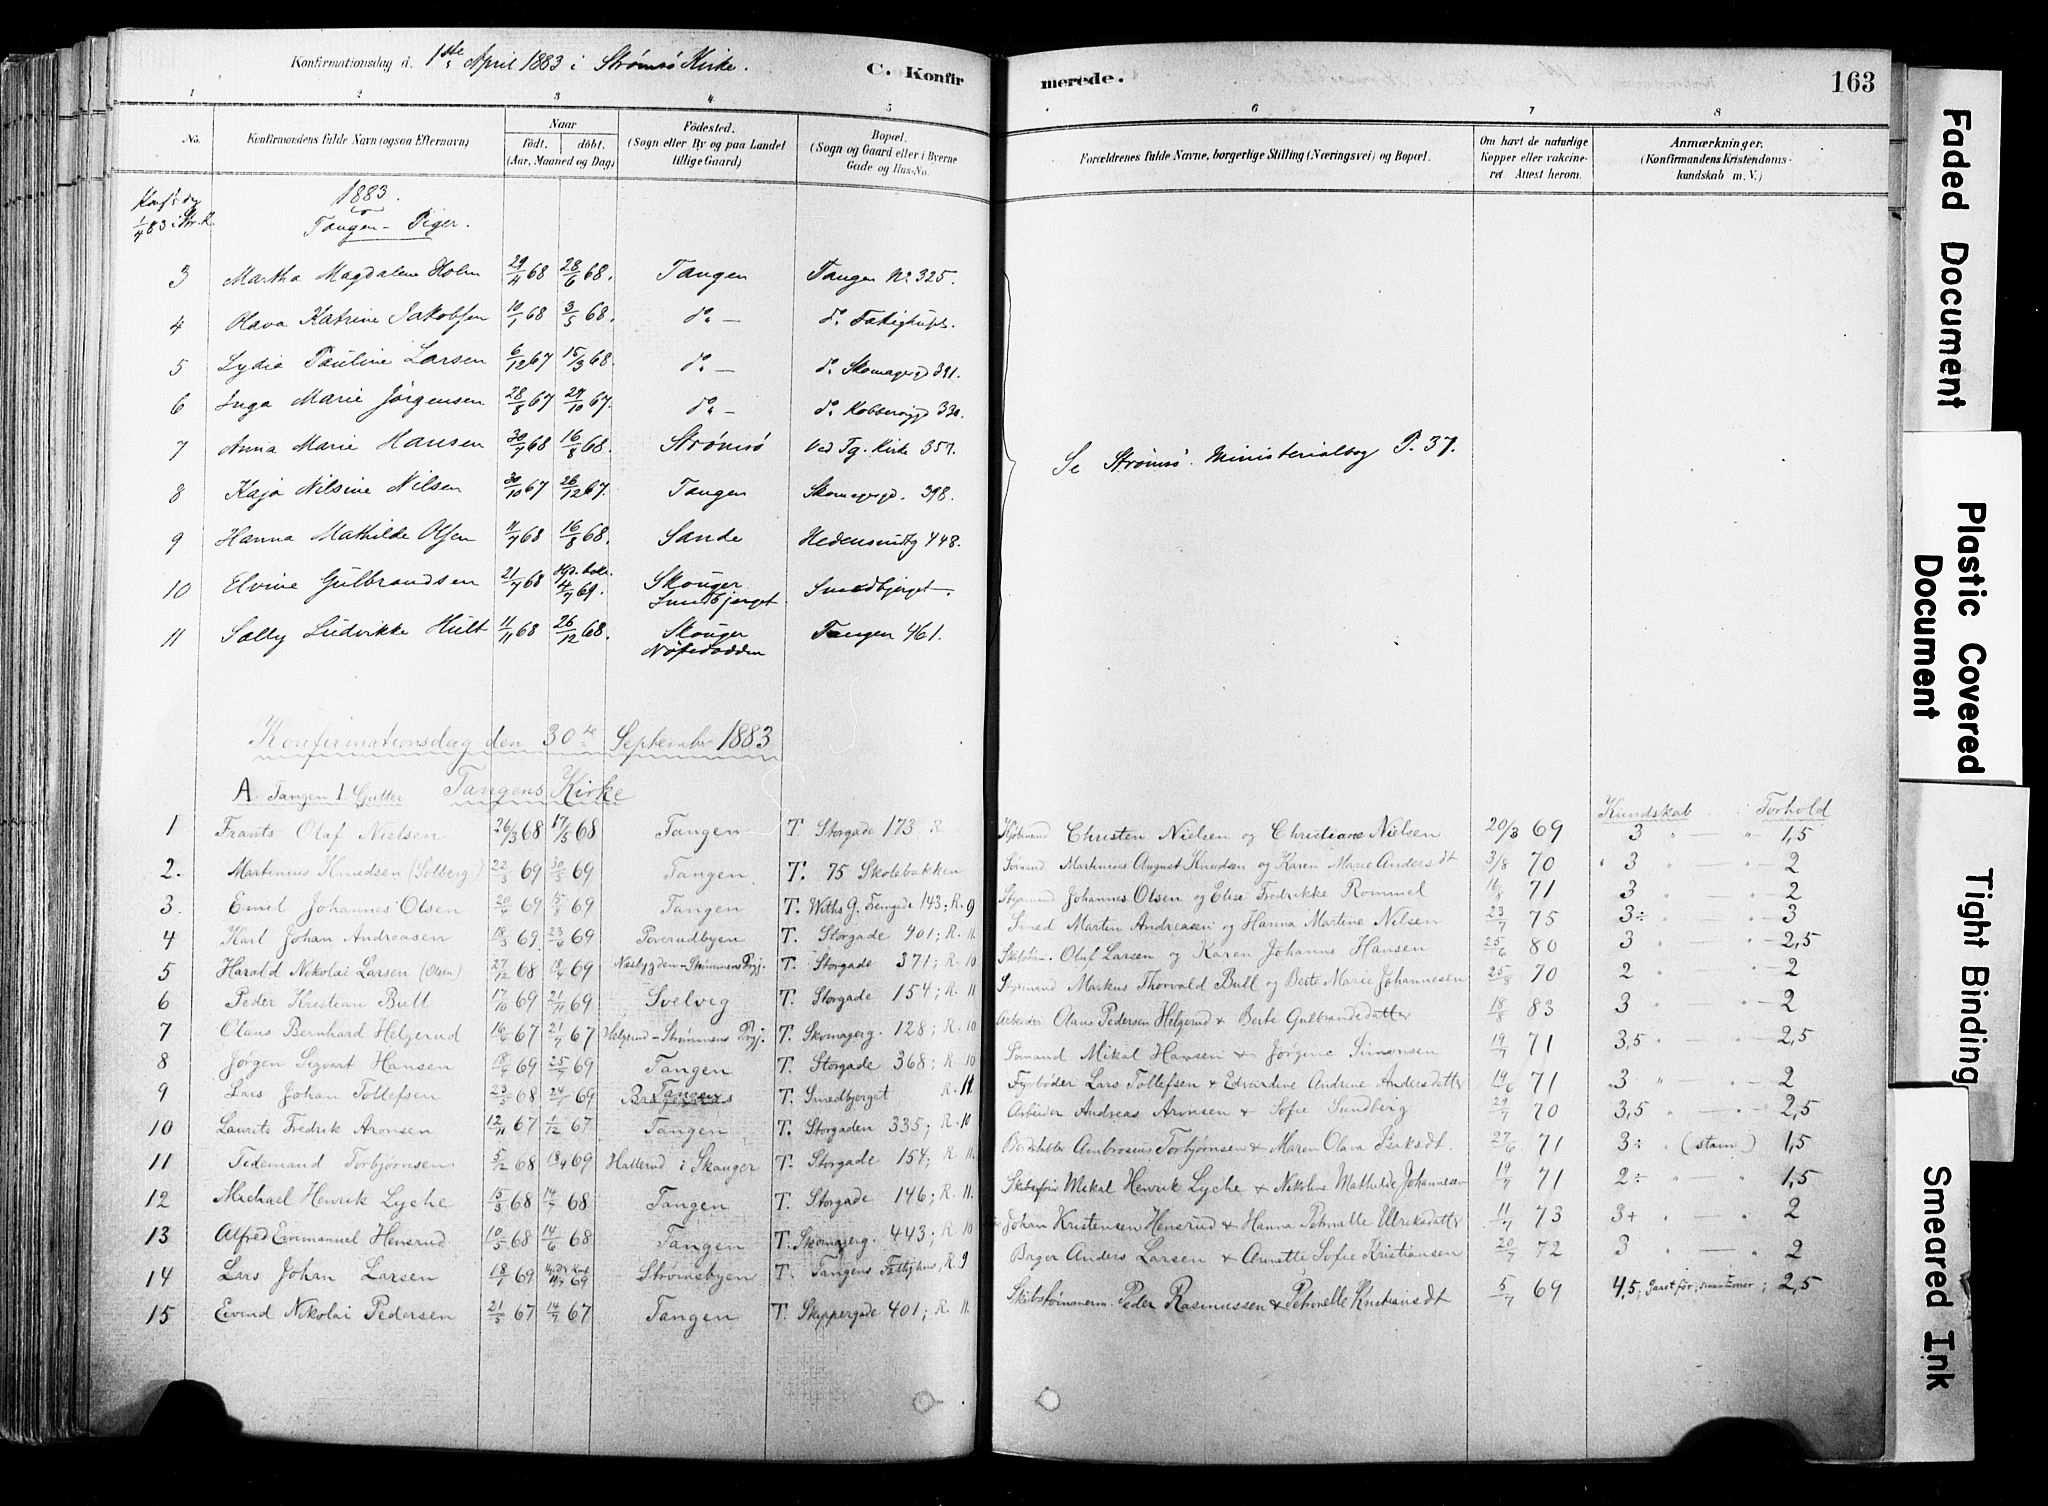 Konfirmationsdag d. 1ste April 1883 i Strømsø Kirke. C. Konfirmerede. 163
1 2 3 4 5 6 7 8
No. Konfirmandens fulde Navn (ogsaa Efternavn) Naar født. døbt. (Aar, Maaned og Dag) Fødested. (Sogn eller By og paa Landet tillige Gaard) Bopæl. (Sogn og Gaard eller i Byerne Gade og Hus-No. Forældrenes fulde Navne, borgerlige Stilling (Næringsvei) og Bopæl. Om havt de naturlige Kopper eller vakcineret Attest herom. Anmærkninger. (Konfirmandens Kristendomskundskab m. V.)
1/4 83 i Str. K. 1883.
Tangen - Piger.
3 Martha Magdalene Holm 29/4 68 28/6 68. Tangen Tangen No. 325.
4 Olava Katrine Jakobsen 10/1 68 3/5 68. do — do
5 Lydia Pauline Larsen 6/12 67 15/3 68. do — do Skomagergd 391.
6 Inga Marie Jørgensen 28/8 67 27/10 67. do — do 330.
7 Anna Marie Hansen 30/7 68 16/8 68. Strømsø Ved Tg. Kirke 357.
Se Strømsø Ministerialbog P. 37.
8 Kaja Nilsine Nilsen 30/10 67 26/12 67. Tangen Skomagergd. 398.
9 Hanna Mathilde Olsen 11/7 68 16/8 68. Sande 448.
10 Elvine Gulbrandsen 21/7 68 4/7 69. Skouger Smedbjerget Smedbjerget —.
11 Sally Ludvikke Hult 11/11 68 26/12 68. Skouger Tangen 461.
Konfirmationsdag den 30te September 1883
A. Tangen I. Gutter Tangens Kirke
Kundskab Forhold
1 Frants Olaf Nielsen 26/3 68 17/5 68 Tangen T. Storgade 173 R Christen Nielsen og Christiane Nielsen 20/3 69 3 " " 1,5
2. Martinius Knudsen (Solberg) 22/3 69 30/5 69 Tangen T. 75 Skolebakken Martinius August Knudsen og Karen Marie Andersdt 3/8 70 3 " — " 2
3. Emil Johannes Olsen 20/4 69 15/8 69 Tangen T. Withs G. 143; R. 9 Johannes Olsen og Elise Fredrikke Rommel 16/8 71 3 " — " 2
4 Karl Johan Andreasen 18/3 69 23/4 69 Poverudbyen T. Storgade 401; R. 11 Smed Marten Andreasen og Hanna Martine Nilsen 23/7 75 3÷ " — " 3
5 Harald Nikolai Larsen (Olsen) 27/12 68 18/4 69 T. Storgade 371; R. 10 Olaf Larsen og Karen Johanne Hansen 25/6 80 3 " — " 2,5
6 Peder Kristian Bull 17/10 69 21/11 69 Svelvig T. Storgade 154; R. 11 Markus Thorvald Bull og Berte Marie Johannesen 25/8 70 2 " — " 2
7 Olaus Bernhard Helgerud 16/4 67 21/7 67 Helgerud - Strømmens T. Skomagerg. 128; R. 10 Arbeider Olaus Pedersen Helgerud & Berte Gulbrandsdatter 18/8 83 3 " — " 2
8 Jørgen Sigvart Hansen 18/4 69 25/7 69 Tangen T. Storgade 368; R. 10 Sømand Mikal Hansen & Jørgine Simonsen 19/7 71 3,5 " — " 2,5
9 Lars Johan Tollefsen 23/5 68 24/1 69 Tangen T. Smedbjerget R. 11 Fyrbøder Lars Tollefsen & Edvardine Andrine Andersdatter 19/6 71 3 " — " 2
10 Laurits Fredrik Aronsen 12/11 67 1/12 67 Tangen T. Storgaden 335; R. 10 Arbeider Andreas Aronsen & Sofie Sundberg 29/7 70 3,5 " — " 2,5
11 Tidemand Torbjørnsen 5/12 68 18/4 69 Hallerud i Skauger T. Storgade 154; R. 11. Ambrosius Torbjørnsen & Maren Olava 27/6 71 3÷ " (stam) " 1,5
12 Michael Henrik Lyche 15/3 68 14/7 68 Tangen T. Storgade 146; R. 11. Mikal Henrik Lyche & Nikoline Mathilde Johannesen 19/7 71 2÷ " — " 1,5
13 Alfred Emmanuel Hensrud 10/5 68 14/6 68 Tangen T. Skomagerg. 443; R. 10 Johan Kristensen Hensrud & Hanna Petronelle Ulriksdatter 11/7 73 3+ " — " 2
14 Lars Johan Larsen 18/1 69 69 Strømsbyen T. Tangens Fattighus; R. 9 Bager Anders Larsen & Anette Sofie Kristiansen 20/7 72 3 " — " 2
15 Eivind Nikolai Pedersen 21/5 67 14/7 67 Tangen T. Skippergade 401; R. 11. Skibstømmerm. Peder Rasmussen & Petronelle Kristiansdt 5/7 69 4,5; svage Evner; 2,5
Faded Document
Plastic Covered Document
Tight Binding
Smeared Ink